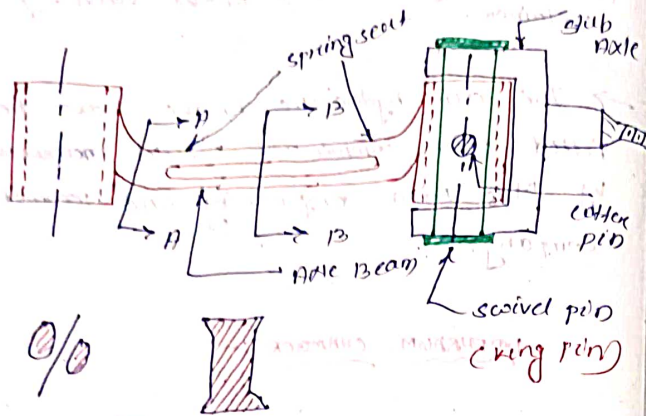 spring seat
stub
Axle
A
B
A
B
Axle Beam
cotter
pin
swivel pin
(king pin)